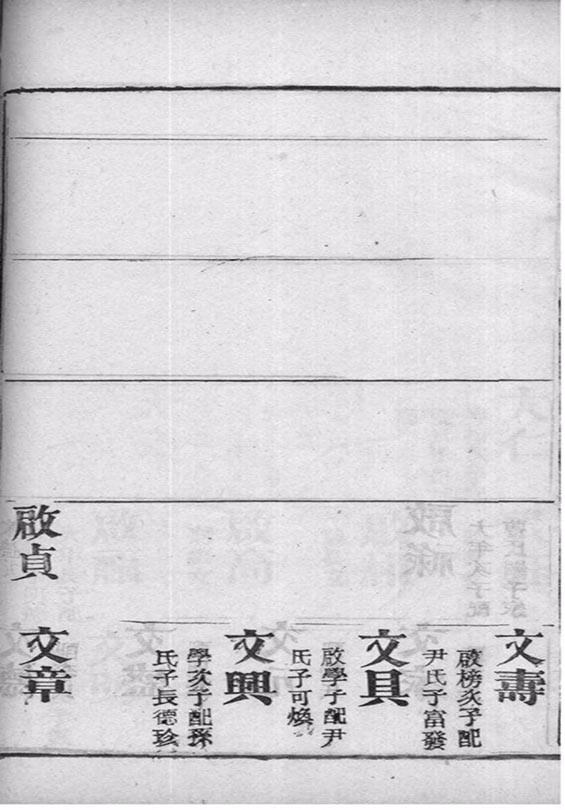 文壽
啟榜次子配
尹氏子富發
文具
啟學子配尹
氏子可煥
文興
學次子配孫
氏子長德珍
啟貞
文章